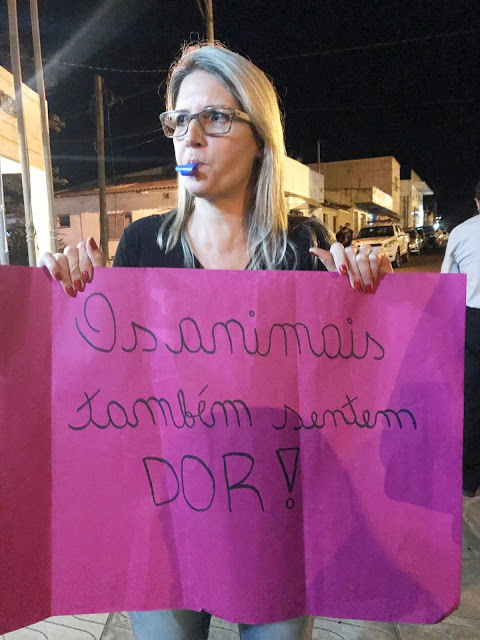 Os animais
também sentem
DOR!